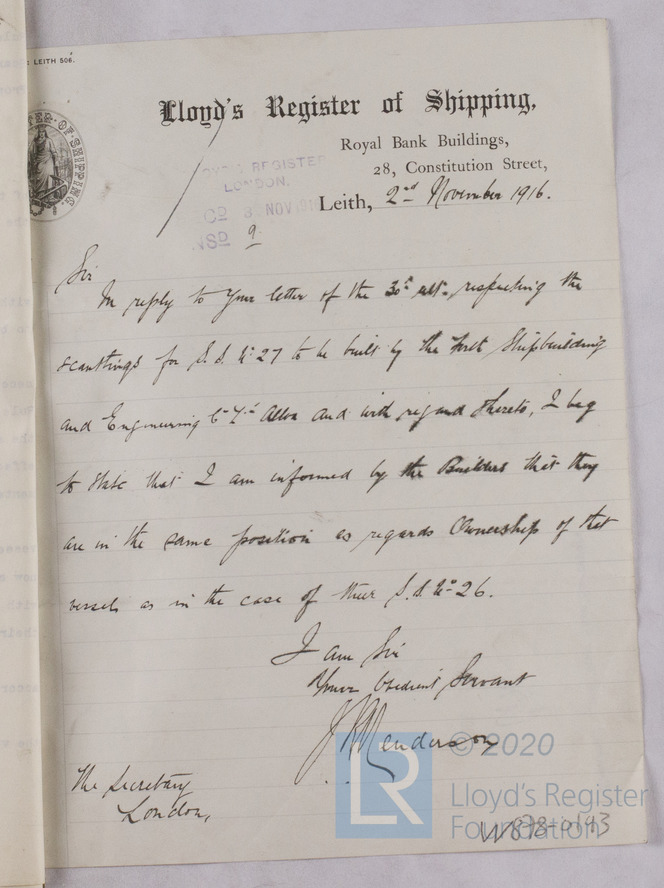 LEITH 506.
Lloyd's Register of Shipping,
Royal Bank Buildings,
28, Constitution Street,
Leith, 2nd November 1916.
LLOYD'S REGISTER
LONDON.
8 NOV 191
9
Sir
In reply to your letter of the 30th ult. respecting the
scantlings for S.S. No 27 to be built by the Forth Shipbuilding
and Engineering Co Ld Alloa and with regard thereto, I beg
to state that I am informed by the Builders that they
are in the same position as regards Ownership of that
vessel as in the case of their S.S. No 26.
I am Sir
Your Obedient Servant
Henderson
The Secretary
London,
© 2020
LR
Lloyd's Register
Foundation
W878-0143